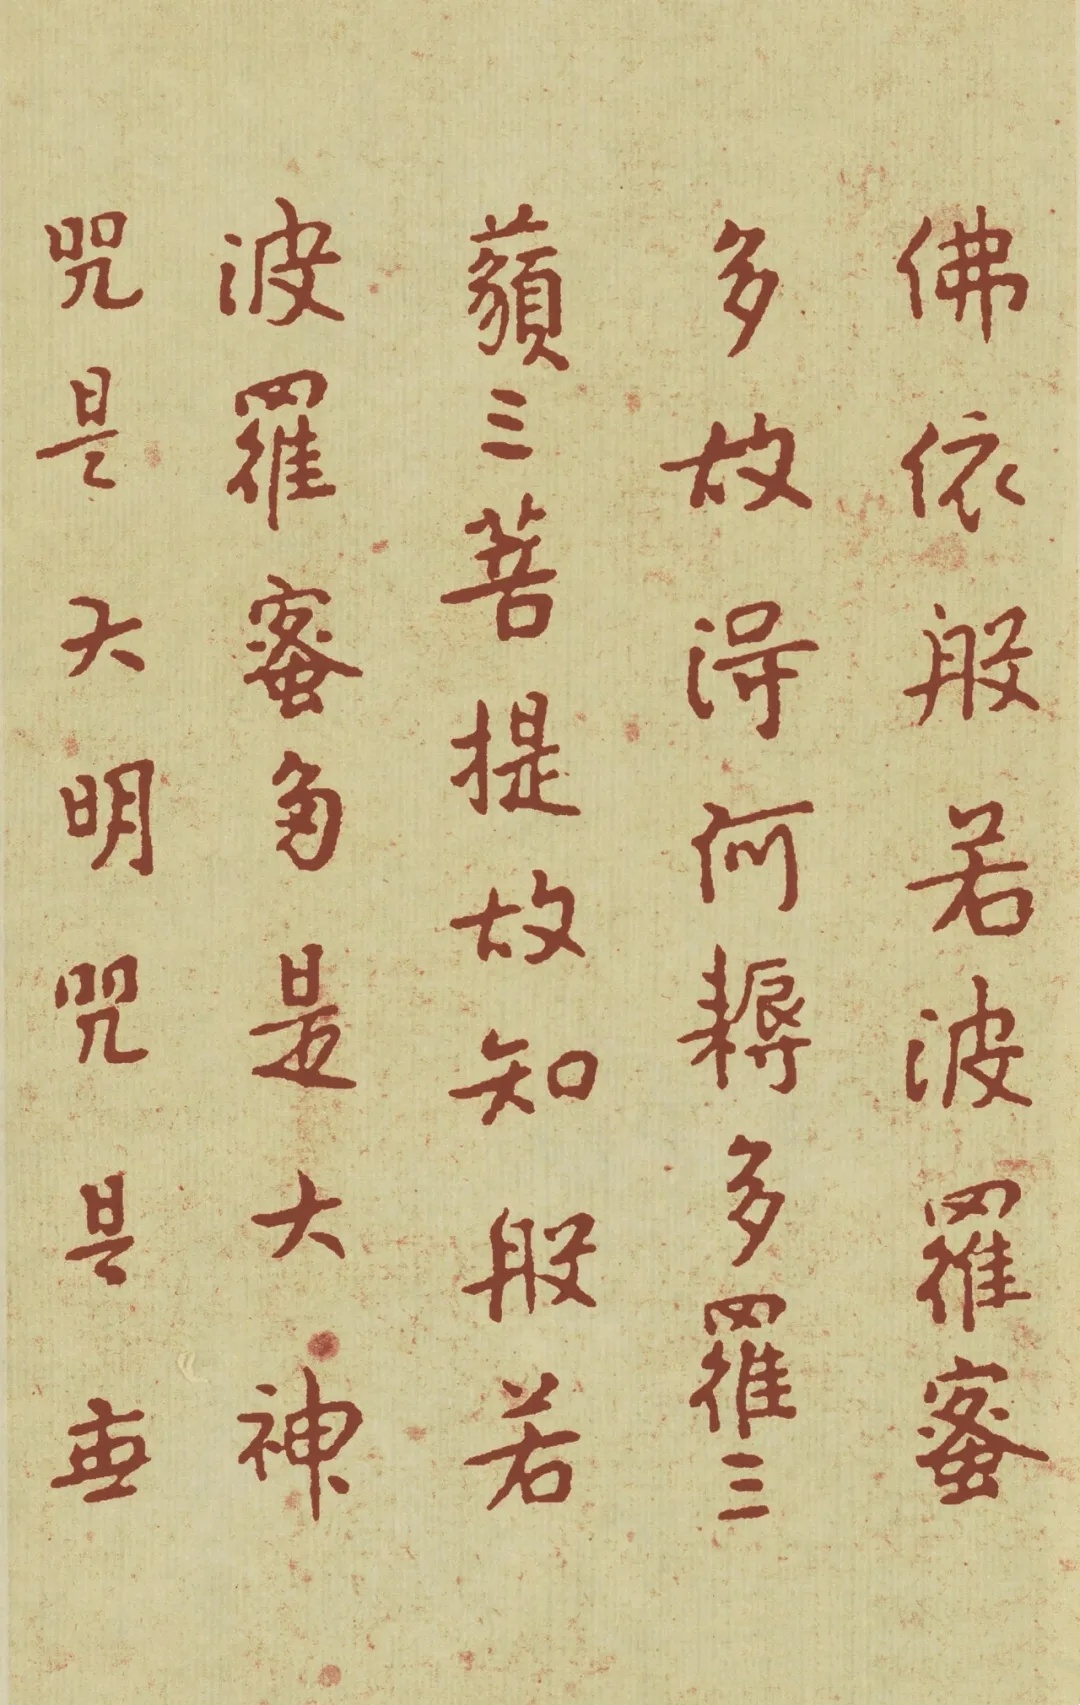 佛依般若波羅蜜
多故得何耨多羅三
藐三菩提故知般若
波羅蜜多是大神
咒是大明咒是